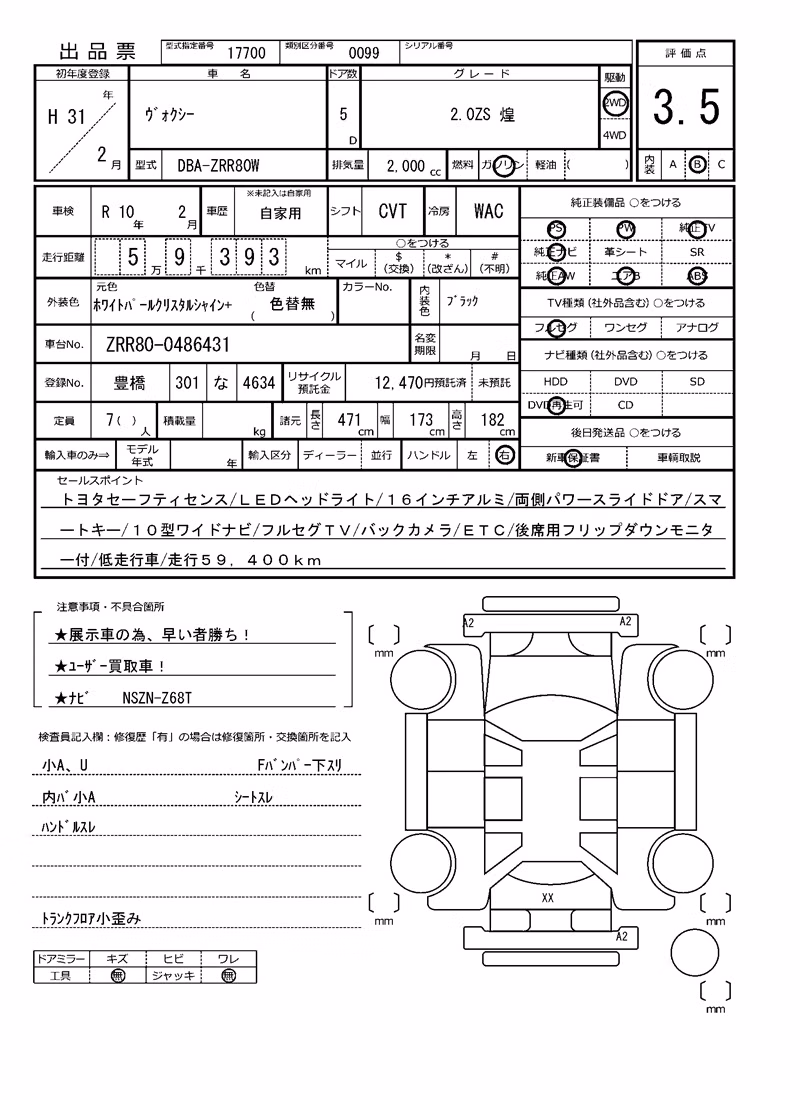 出品票 型式指定番号 17700 類別区分番号 0099 シリアル番号
評価点
3.5
内装 A B C
初年度登録 車名 ドア数 グレード 駆動
H 31 年 2 月
ヴォクシー 5 D 2.0ZS 煌 2WD 4WD
型式 DBA-ZRR80W 排気量 2,000 cc 燃料 ガソリン 軽油 ( )
車検 R 10 年 2 月 車歴 ※未記入は自家用 自家用 シフト CVT 冷房 WAC
走行距離 5 万 9 千 3 9 3 km
○をつける
マイル $(交換) *(改ざん) #(不明)
外装色 元色 ホワイトパールクリスタルシャイン+ 色替 色替無 ( ) カラーNo. 内装色 ブラック
車台No. ZRR80-0486431 名変期限 月 日
登録No. 豊橋 301 な 4634 リサイクル預託金 12,470円預託済 未預託
定員 7( )人 積載量 kg 諸元 長さ 471cm 幅 173cm 高さ 182cm
輸入車のみ⇒ モデル年式 年 輸入区分 ディーラー 並行 ハンドル 左 右
純正装備品 ○をつける
PS PW 純正TV
純正ナビ 革シート SR
純正AW エアB ABS
TV種類(社外品含む)○をつける
フルセグ ワンセグ アナログ
ナビ種類(社外品含む)○をつける
HDD DVD SD
DVD再生可 CD
後日発送品 ○をつける
新車保証書 車輌取説
セールスポイント
トヨタセーフティセンス/LEDヘッドライト/16インチアルミ/両側パワースライドドア/スマ
ートキー/10型ワイドナビ/フルセグTV/バックカメラ/ETC/後席用フリップダウンモニタ
ー付/低走行車/走行59,400km
注意事項・不具合箇所
★展示車の為、早い者勝ち!
★ユーザー買取車!
★ナビ NSZN-Z68T
検査員記入欄:修復歴「有」の場合は修復箇所・交換箇所を記入
小A、U Fバンパー下スリ
内バ小A シートスレ
ハンドルスレ
トランクフロア小歪み
ドアミラー キズ ヒビ ワレ
工具 無 ジャッキ 無
A2 A2
mm mm
XX
mm mm
A2
mm